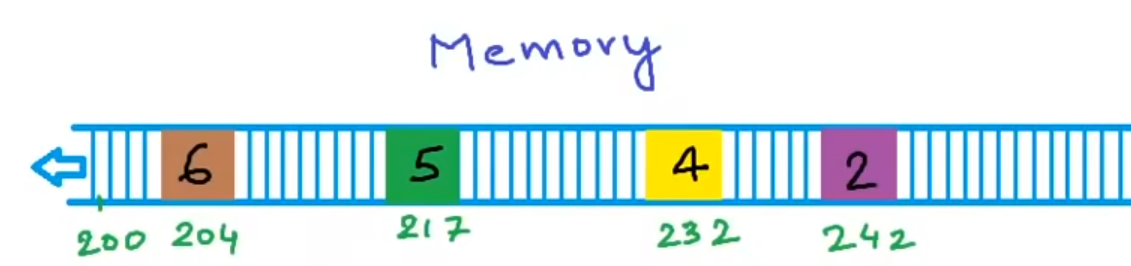 Memory
6 5 4 2
200 204 217 232 242